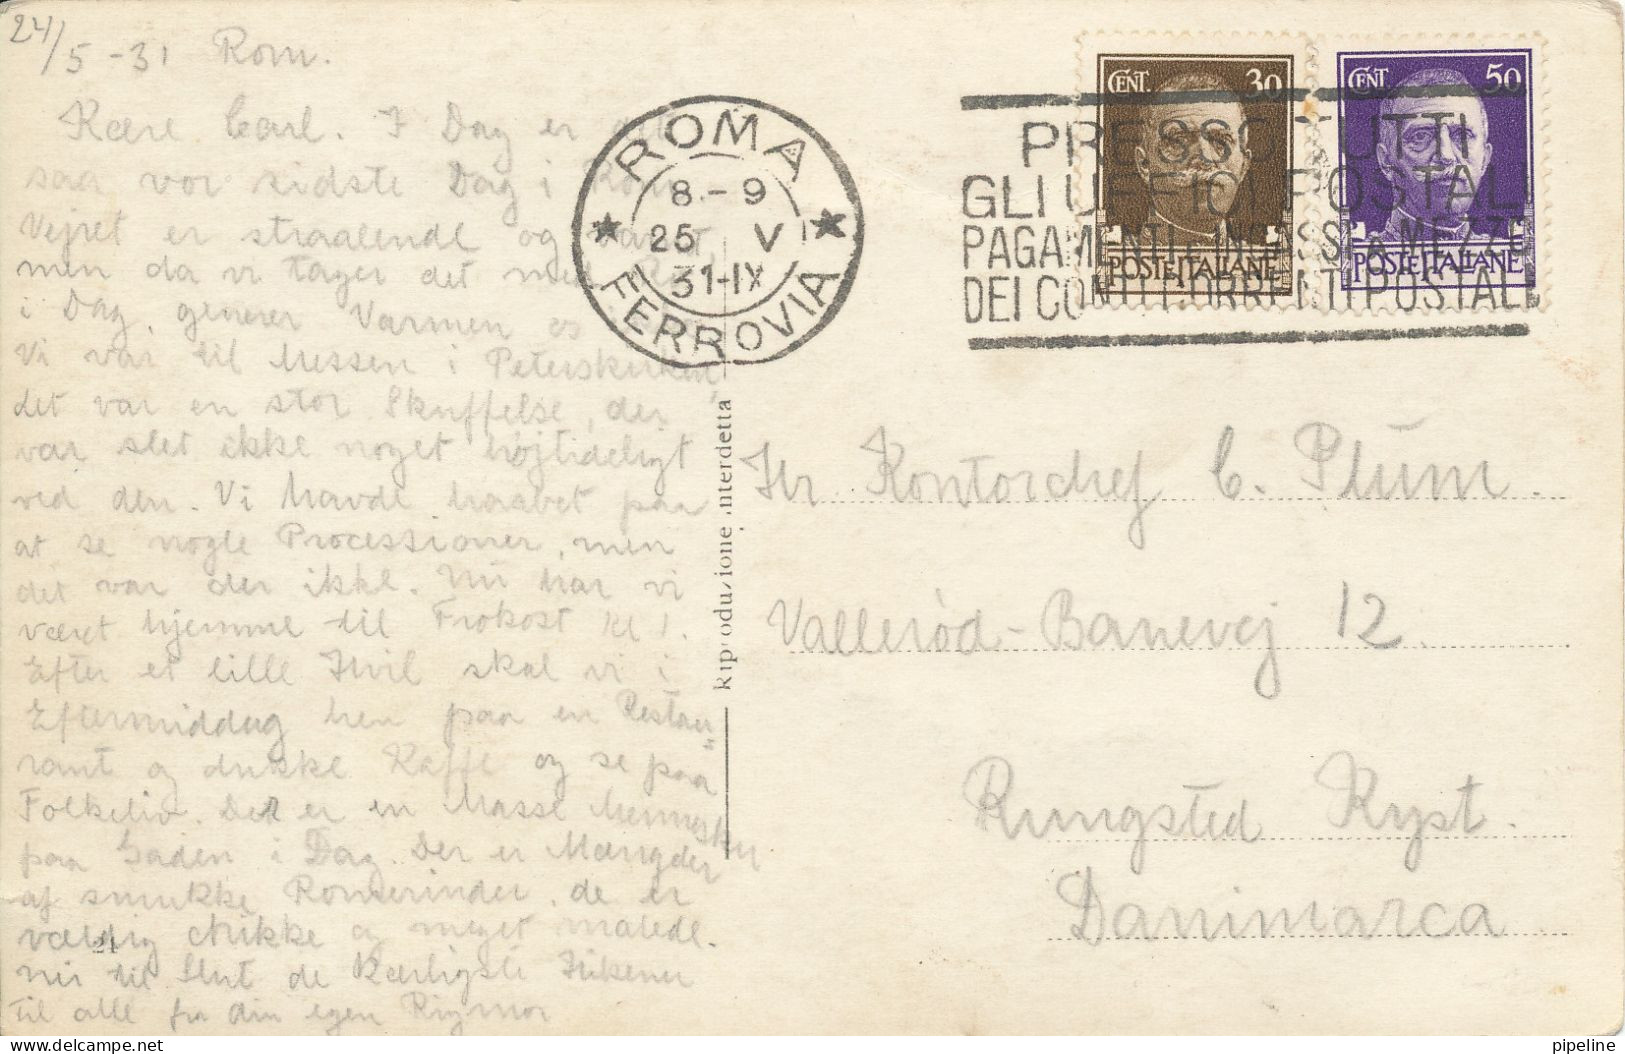 24/5-31 Rom.
Kære Carl. I Dag er alt
saa vor sidste Dag i Rom
Vejret er straalende og varmt
men da vi tager det med Ro
i Dag, generer Varmen os
Vi var til Messen i Peterskirken,
det var en stor Skuffelse, der
var slet ikke noget højtideligt
ved den. Vi havde haabet paa
at se nogle Processioner, men
det var der ikke. Nu har vi
været hjemme til Frokost Kl 1.
Efter et lille Hvil skal vi i
Eftermiddag hen paa en Restau=
rant og drikke Kaffe og se paa
Folkeliv. Der er en Masse Mennesker
paa Gaden i Dag. Der er Mængder
af smukke Romerinder, de er
vældig chikke og meget malede.
Nu til Slut de kærligste Hilsener
til alle fra din egen Rigmor
21
Riproduzione interdetta
ROMA
8.-9
25 V
31-IX
FERROVIA
PRESSO TUTTI
GLI UFFICI POSTALI
PAGAMENTI E INCASSI A MEZZO
DEI CONTI CORRENTI POSTALI
CENT. 30
POSTE ITALIANE
CENT 50
POSTE ITALIANE
Hr Kontorchef C. Plum.
Vallerød-Banevej 12.
Rungsted Kyst.
Danimarca
pipeline